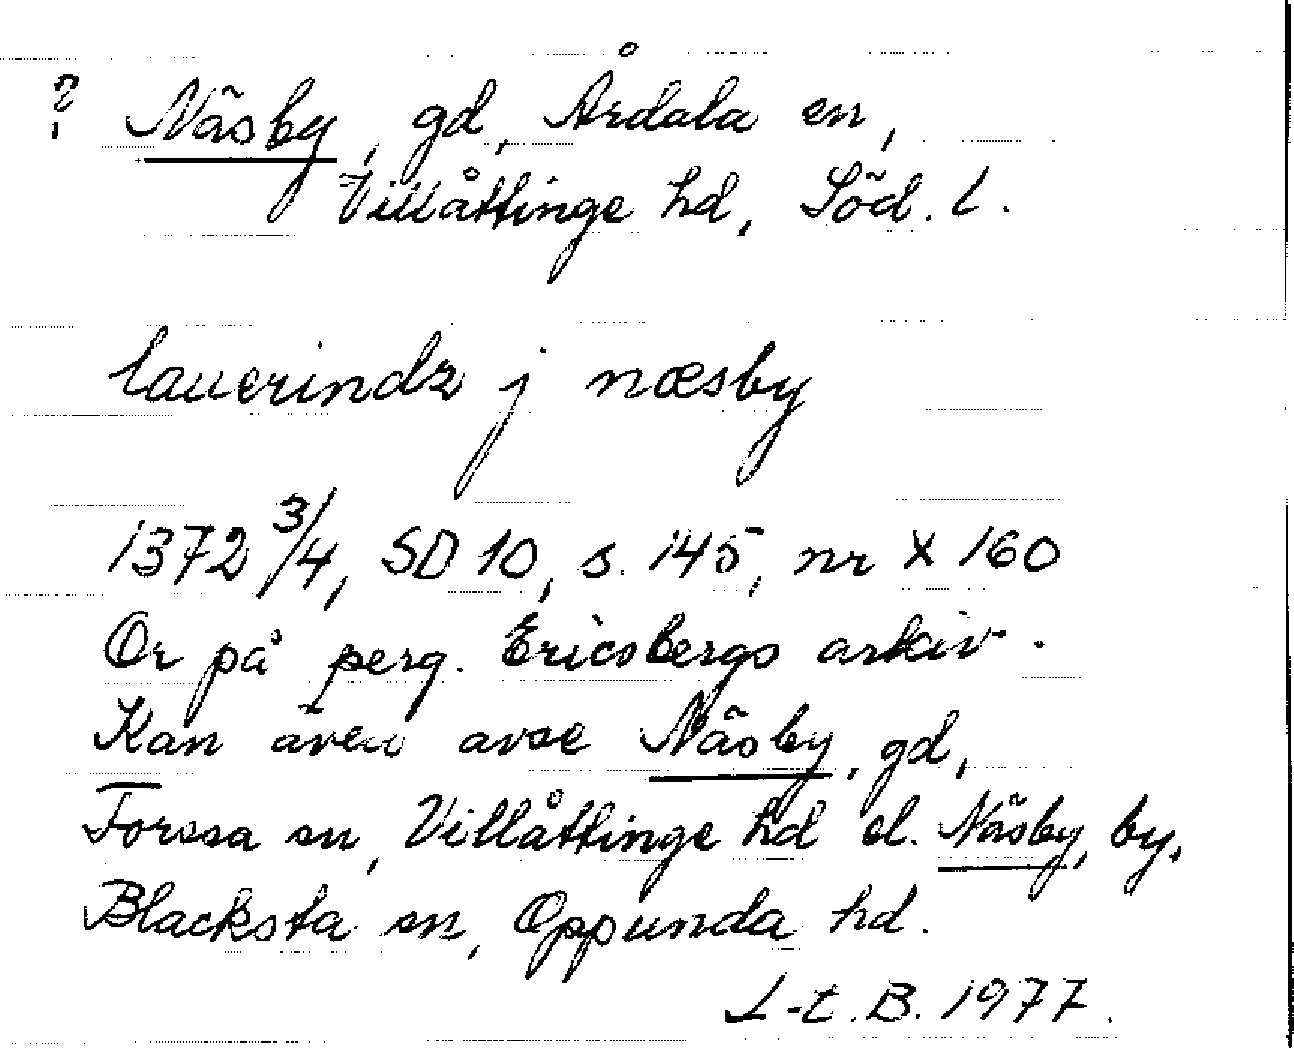 ? Näsby, gd, Årdala sn,
Villåttinge hd, Söd. l.
lauerindz j næsby
1372 3/4, SD 10, s. 145, nr X 160
Or på perg. Ericsbergs arkiv.
Kan även avse Näsby, gd,
Forssa sn, Villåttinge hd el. Näsby, by,
Blacksta sn, Oppunda hd.
L-t. B. 1977.